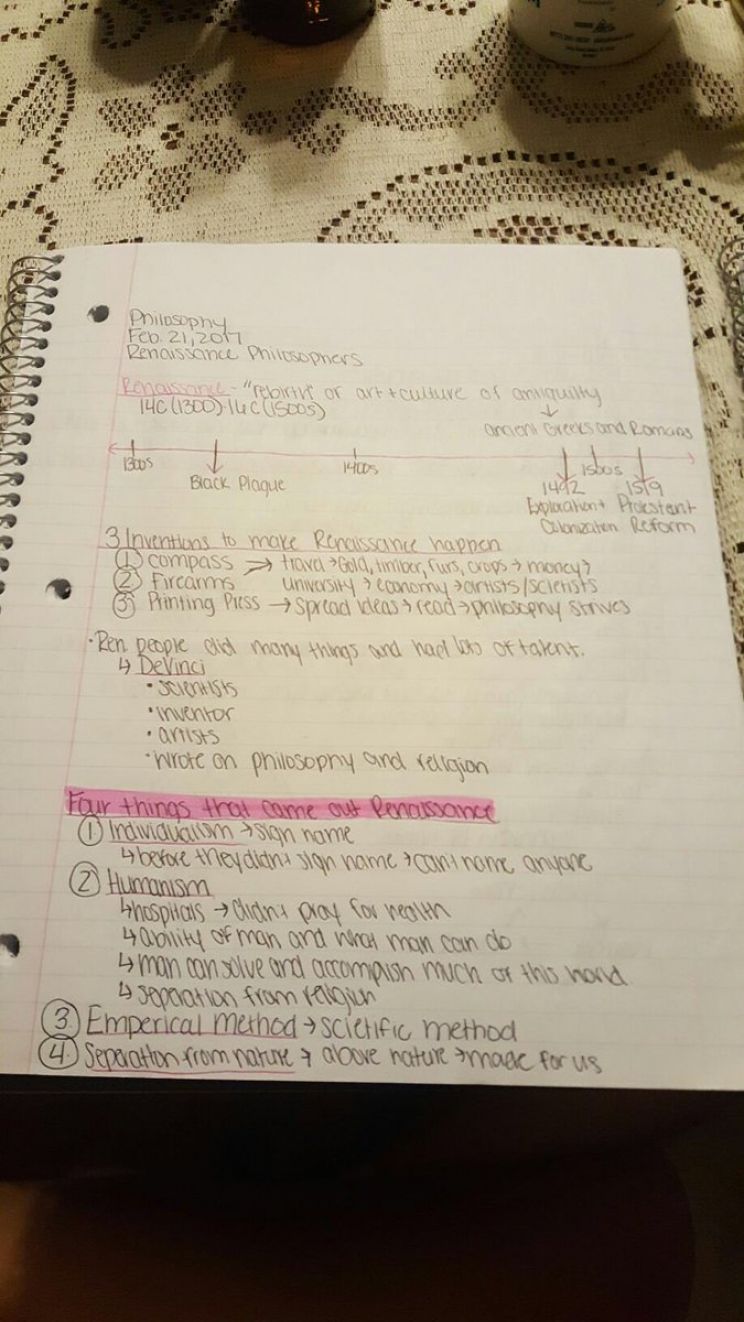 Philosophy
Feb. 21, 2017
Renaissance Philosophers
Renaissance - "rebirth" of art + culture of antiquity
14C (1300) - 16C (1500s)
↓
ancient Greeks and Romans
1300s
Black Plaque
1400s
1492
1500s
1519
Exploration + Colonization
Protestant Reform
3 Inventions to make Renaissance happen
① compass → travel → Gold, timber, furs, crops → money →
② Firearms university → economy → artists/scietists
③ Printing Press → spread ideas → read → philosophy strives
• Ren people did many things and had lots of talent.
↳ DeVinci
• scientists
• inventor
• artists
• wrote on philosophy and religion
Four things that came out Renaissance
① Individualism → sign name
↳ before they didn't sign name → can't name anyone
② Humanism
↳ hospitals → didn't pray for health
↳ ability of man and what man can do
↳ man can solve and accomplish much of this
↳ seperation from religiun
③ Emperical Method → scietific method
④ Seperation from nature → above nature → made for us